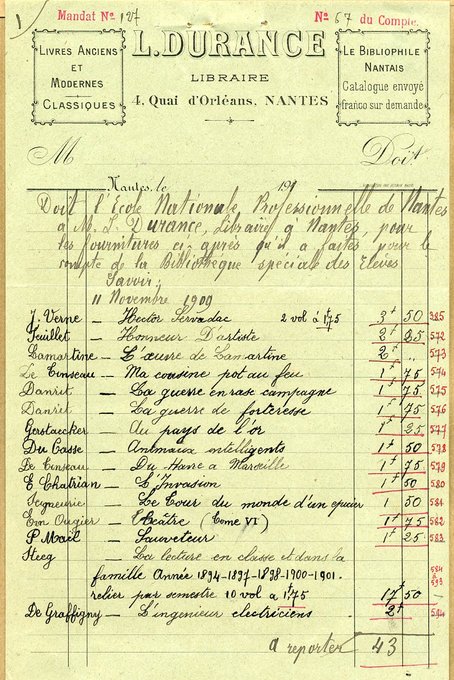 1
Mandat No 127
No 67 du Compte
Livres Anciens
et
Modernes
Classiques
L. DURANCE
LIBRAIRE
4, Quai d'Orléans, NANTES
Le Bibliophile
Nantais
Catalogue envoyé
franco sur demande
M Doit
Nantes, le 191
Doit l'Ecole Nationale Professionnelle de Nantes
à M. L. Durance, Libraire à Nantes, pour
les fournitures ci-après qu'il a faites pour le
compte de la Bibliothèque spéciale des Elèves
Savoir;
11 Novembre 1909
J. Verne — Hector Servadac 2 vol à 1f75 3f 50 385
Feuillet — Honneur D'artiste 2f 25 572
Lamartine — L'œuvre de Lamartine 2f „ 573
Le Tinseau — Ma cousine pot au feu 1f 75 574
Danrit — La guerre en rase campagne 1f 75 575
Danrit — La guerre de forteresse 1f 75 576
Gerstaucker — Au pays de l'or 1f 25 577
Du Casse — Animaux intelligents 1f 50 578
De Tinseau — Du Havre à Marseille 1f 75 579
E Chatrian — L'Invasion 1f 50 580
Seigneurie — Le Tour du monde d'un epicier 1 50 581
Em Augier — Théatre (Tome VI) 1f 75 582
P Mael — Sauveteur 1f 25 583
Steeg — La lecture en classe et dans la
famille Année 1894-1897-1898-1900-1901- 584 à 593
relier par semestre 10 vol à 1f75 17f 50
De Graffigny — L'ingenieur electriciens 2f „ 594
A reporter 43